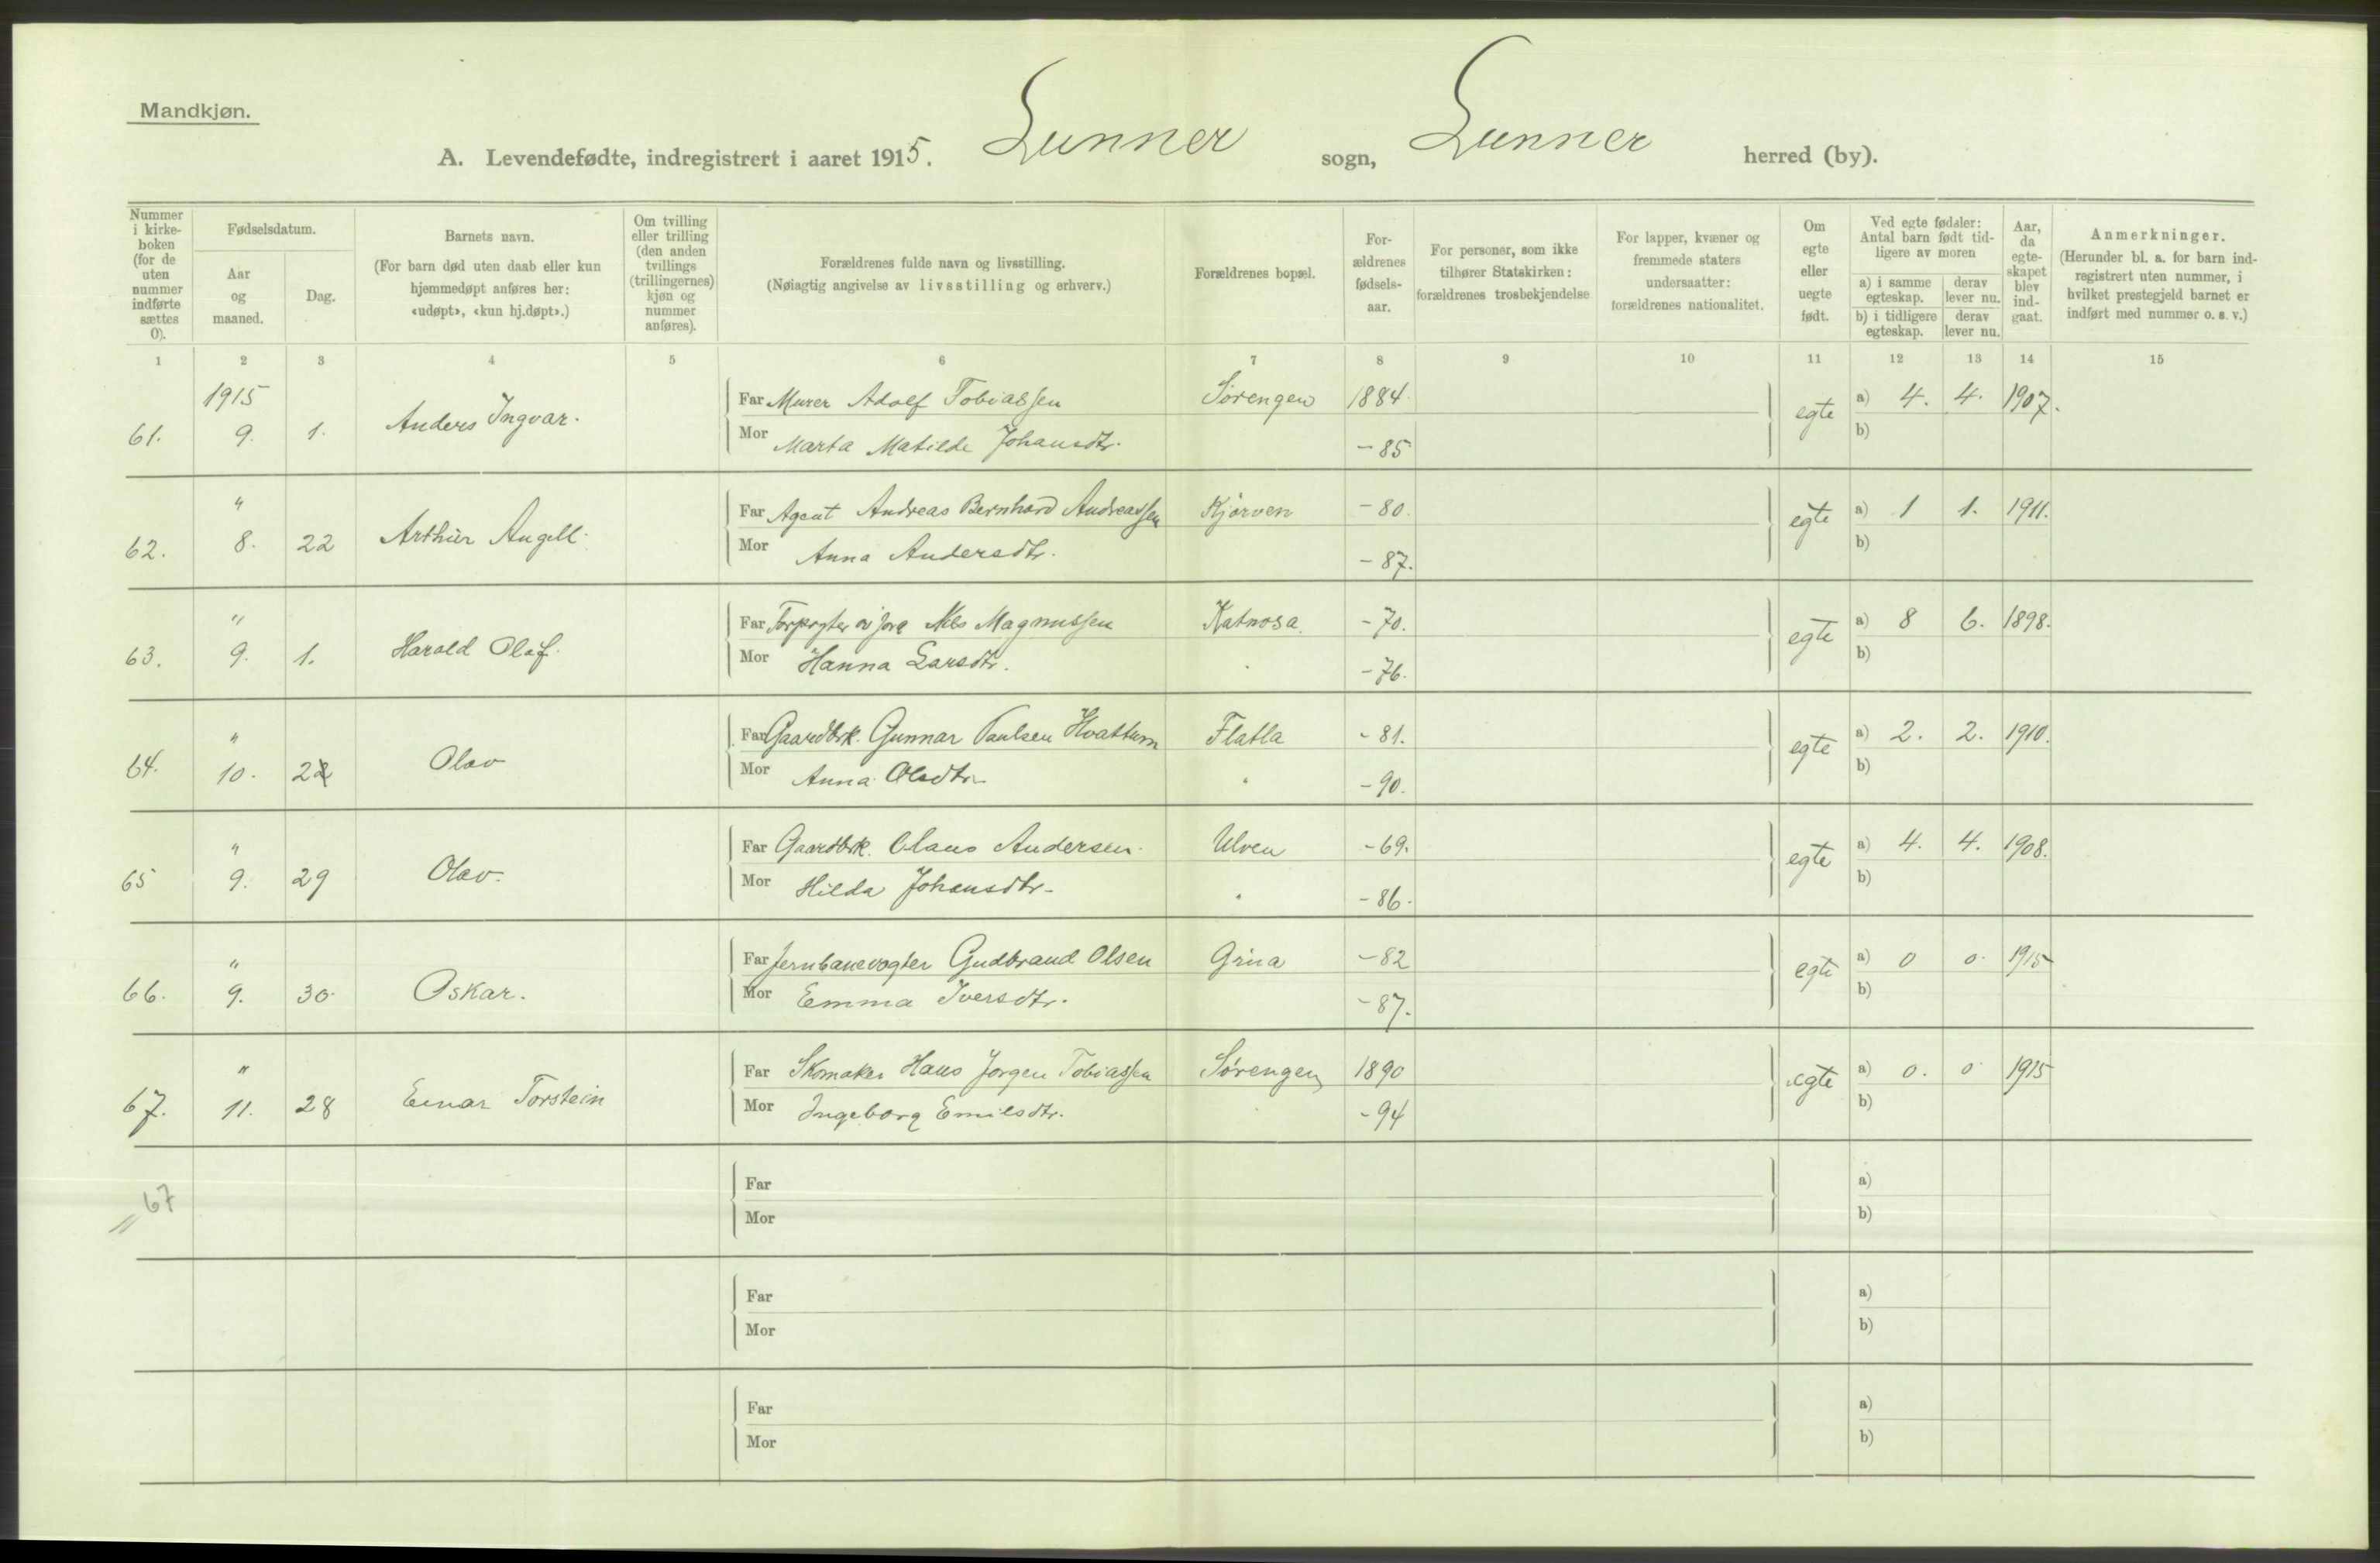 Mandkjøn.
A. Levendefødte, indregistrert i aaret 1915. Lunner sogn, Lunner herred (by).
Nummer i kirke-boken (for de uten nummer indførte sættes 0).
Fødselsdatum.
Aar og maaned.
Dag.
Barnets navn.
(For barn død uten daab eller kun hjemmedøpt anføres her: «udøpt», «kun hj.døpt».)
Om tvilling eller trilling (den anden tvillings (trillingernes) kjøn og nummer anføres).
Forældrenes fulde navn og livsstilling.
(Nøiagtig angivelse av livsstilling og erhverv.)
Forældrenes bopæl.
For-ældrenes fødsels-aar.
For personer, som ikke tilhører Statskirken: forældrenes trosbekjendelse
For lapper, kvæner og fremmede staters undersaatter: forældrenes nationalitet.
Om egte eller uegte født.
Ved egte fødsler: Antal barn født tid-ligere av moren
a) i samme egteskap. derav lever nu.
b) i tidligere egteskap. derav lever nu.
Aar, da egte-skapet blev ind-gaat.
Anmerkninger.
(Herunder bl. a. for barn ind-registrert uten nummer, i hvilket prestegjeld barnet er indført med nummer o. s. v.)
1 2 3 4 5 6 7 8 9 10 11 12 13 14 15
1915
61. 9. 1. Anders Ingvar. Far Murer Adolf Tobiassen Sørengen 1884. egte a) 4. 4. 1907.
Mor Marta Matilde Johansdtr. -85 b)
"
62. 8. 22 Arthur Angell. Far Agent Andreas Bernhard Andreassen Kjørven -80. egte a) 1 1. 1911.
Mor Anna Andersdtr. -87. b)
"
63. 9. 1. Harald Olaf. Far Nils Magnussen Katnosa -70. egte a) 8 6. 1898.
Mor Hanna Larsdtr. -76. b)
"
64. 10. 22 Olav Far Gaardbrk. Gunnar Paulsen Hvattum Flatla -81. egte a) 2. 2. 1910.
Mor Anna Olsdtr. " -90. b)
"
65 9. 29 Olav. Far Gaardbrk. Olaus Andersen. Ulven -69. egte a) 4. 4. 1908.
Mor Hilda Johansdtr. " -86. b)
"
66. 9. 30. Oskar. Far Jernbanevogter Gudbrand Olsen Grina -82 egte a) 0 0. 1915
Mor Emma Iversdtr. -87. b)
"
67. 11. 28 Einar Torstein Far Skomaker Hans Jørgen Tobiassen Sørengen 1890 egte a) 0. 0 1915
Mor Ingeborg Emilsdtr. -94 b)
67 Far a)
Mor b)
Far a)
Mor b)
Far a)
Mor b)